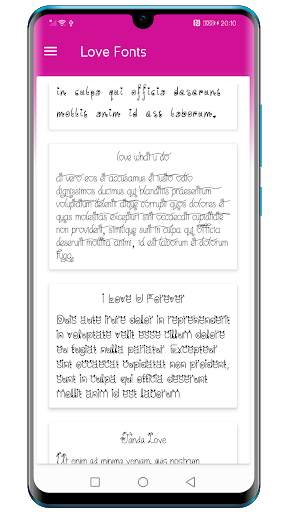 20:10
Love Fonts
in culpa qui officia deserunt
mollit anim id est laborum.
love what u do
at vero eos et accusamus et iusto odio
dignissimos ducimus qui blanditiis praesentium
voluptatum deleniti atque corrupti quos dolores et
quas molestias excepturi sint occaecati cupiditate
non provident, similique sunt in culpa qui officia
deserunt mollitia animi, id est laborum et dolorum
fuga.
I Love U Forever
Duis aute irure dolor in reprehenderit
in voluptate velit esse cillum dolore
eu fugiat nulla pariatur. Excepteur
sint occaecat cupidatat non proident,
sunt in culpa qui officia deserunt
mollit anim id est laborum
Panda Love
Ut enim ad minima veniam, quis nostrum